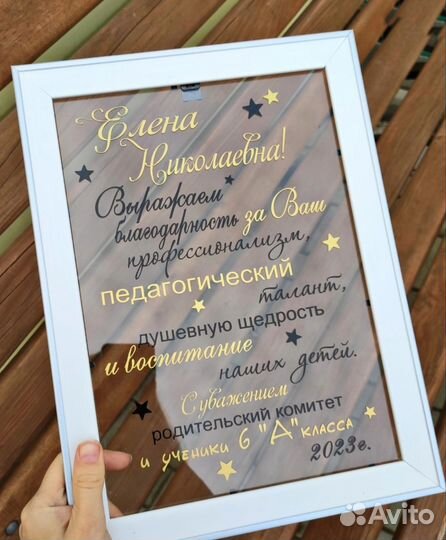 Елена
Николаевна!
Выражаем
благодарность за Ваш
профессионализм,
педагогический
талант,
душевную щедрость
и воспитание
наших детей.
С уважением
родительский комитет
и ученики 6 "А" класса
2023г.
Avito